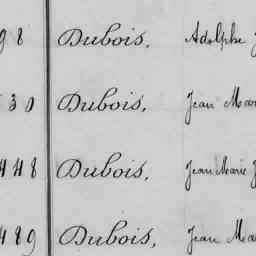 98 Dubois, Adolphe
30 Dubois, Jean Mar
448 Dubois, Jean Marie J
489 Dubois, Jean Ma